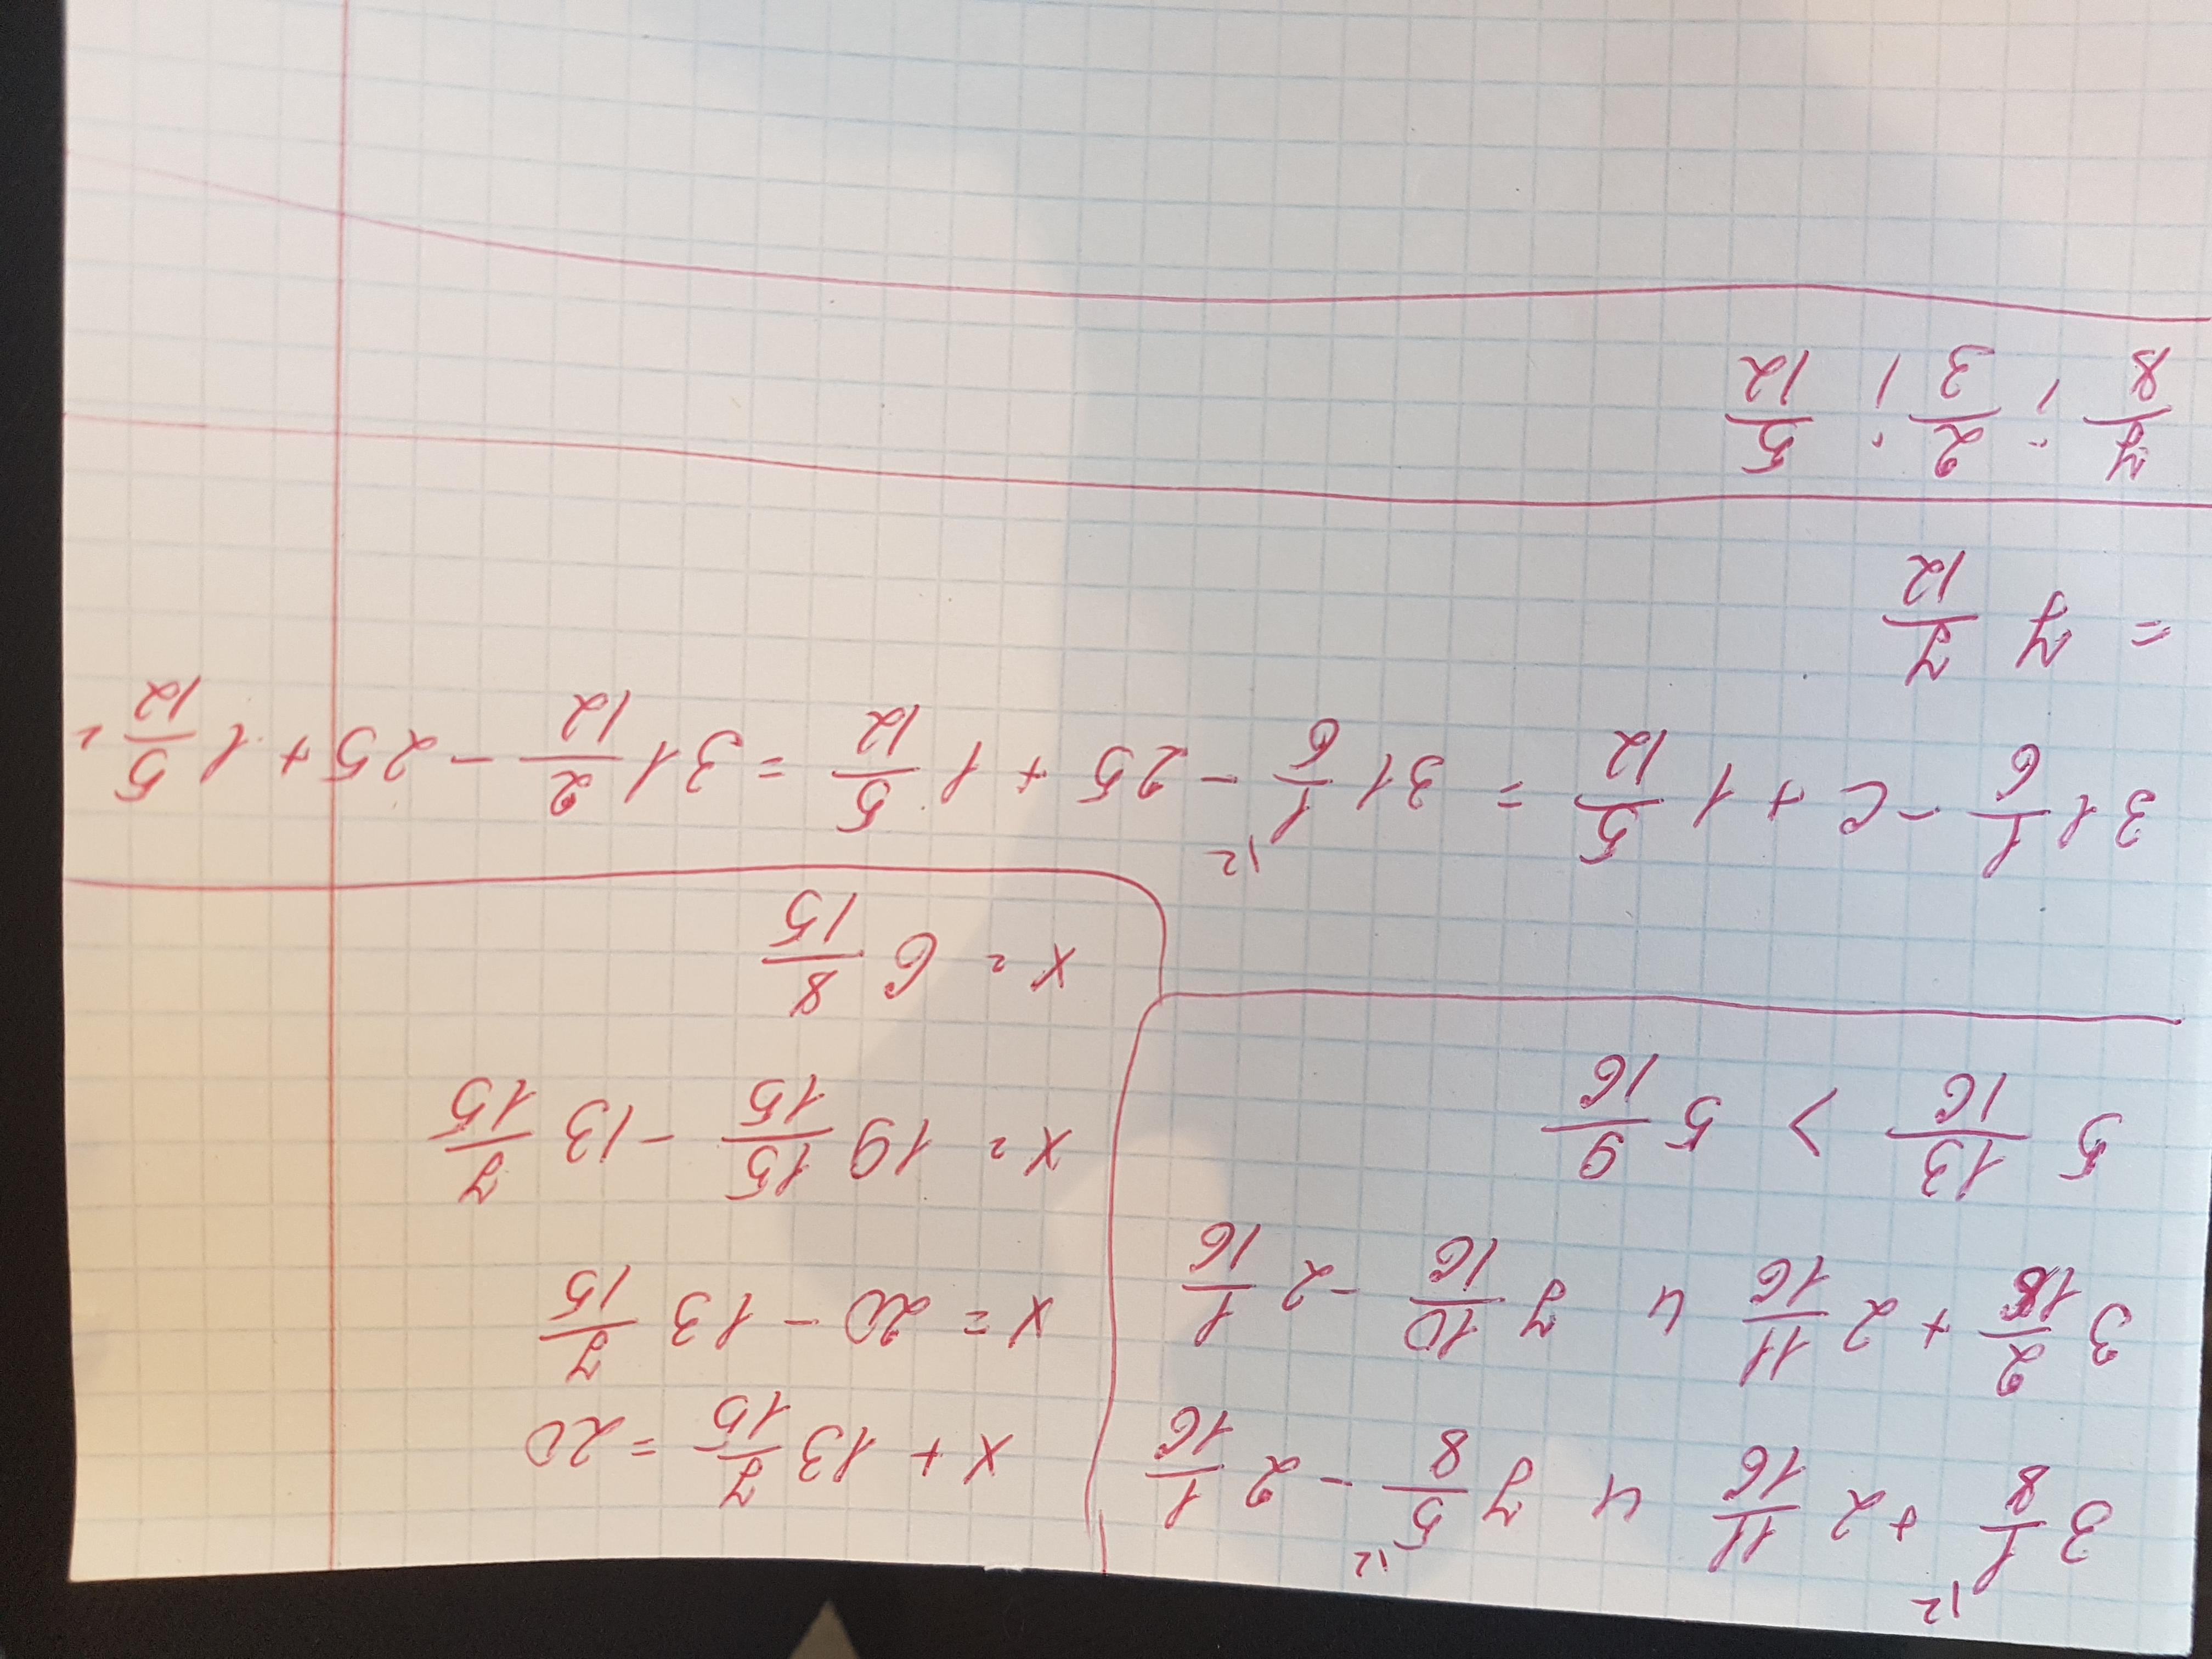 3 1/8 \2 + 2 11/16 и 7 5/8 \2 - 2 1/16
3 2/16 + 2 11/16 и 7 10/16 - 2 1/16
5 13/16 > 5 9/16
x + 13 7/15 = 20
x = 20 - 13 7/15
x = 19 15/15 - 13 7/15
x = 6 8/15
31 1/6 - c + 1 5/12 = 31 1/6 \2 - 25 + 1 5/12 = 31 2/12 - 25 + 1 5/12 =
= 7 7/12
7/8 ; 2/3 ; 5/12